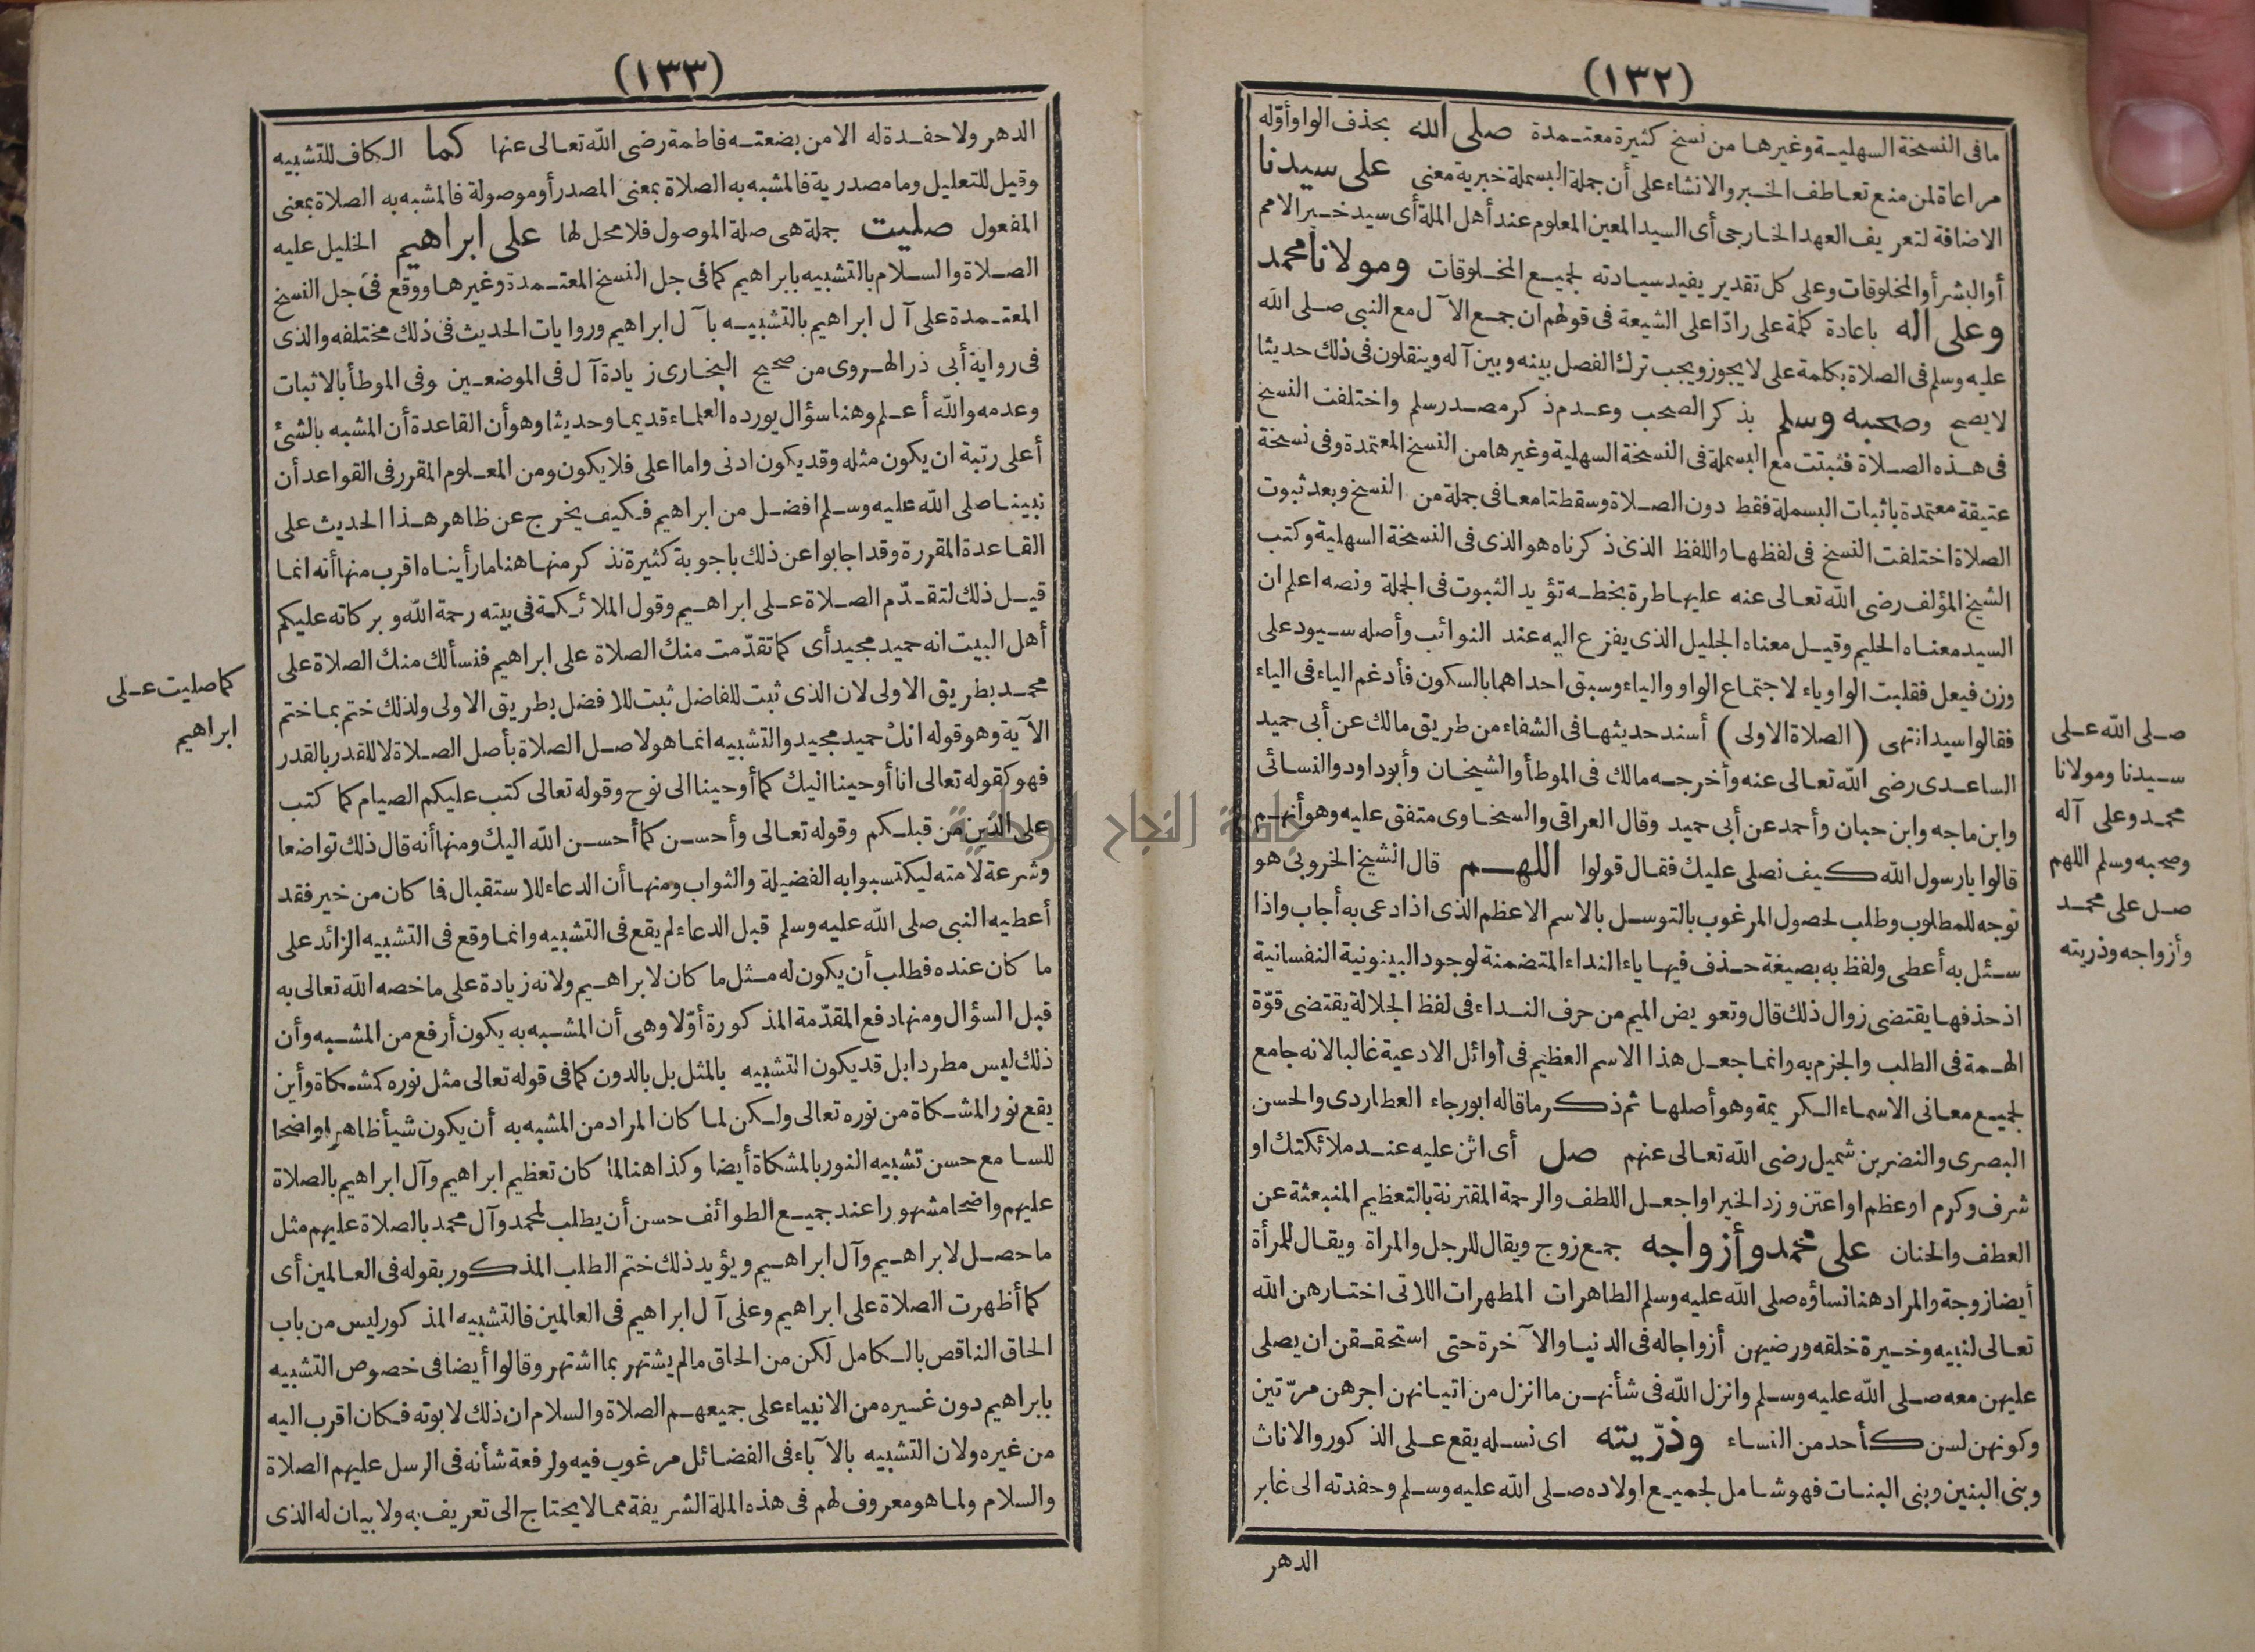 (١٣٢)
ما فى النسخة السهلية وغيرها من نسخ كثيرة معتمدة صلى الله بحذف الواو أوّله
مراعاة لمن منع تعاطف الخبر والانشاء على أن جملة البسملة خبرية معنى على سيدنا
الاضافة لتعريف العهد الخارجى أى السيد المعين المعلوم عند أهل الملة أى سيد خير الامم
أو البشر أو المخلوقات وعلى كل تقدير يفيد سيادته لجميع المخلوقات ومولانا محمد
وعلى اله باعادة كلمة على رادّا على الشيعة فى قولهم ان جمع الآل مع النبى صلى الله
عليه وسلم فى الصلاة بكلمة على لا يجوز ويجب ترك الفصل بينه وبين آله وينقلون فى ذلك حديثا
لا يصح وصحبه وسلم بذكر الصحب وعدم ذكر مصدر سلم واختلفت النسخ
فى هذه الصلاة فثبتت مع البسملة فى النسخة السهلية وغيرها من النسخ المعتمدة وفى نسخة
عتيقة معتمدة باثبات البسملة فقط دون الصلاة وسقطتا معا فى جملة من النسخ وبعد ثبوت
الصلاة اختلفت النسخ فى لفظها واللفظ الذى ذكرناه هو الذى فى النسخة السهلية وكتب
الشيخ المؤلف رضى الله تعالى عنه عليها طرة بخطه تؤيد الثبوت فى الجملة ونصه اعلم ان
السيد معناه الحليم وقيل معناه الجليل الذى يفزع اليه عند النوائب وأصله سيود على
وزن فيعل فقلبت الواو ياء لاجتماع الواو والياء وسبق احداهما بالسكون فأدغم الياء فى الياء
فقالوا سيد انتهى (الصلاة الاولى) أسند حديثها فى الشفاء من طريق مالك عن أبى حميد
الساعدى رضى الله تعالى عنه وأخرجه مالك فى الموطأ والشيخان وأبوداود والنسائى
وابن ماجه وابن حبان وأحمد عن أبى حميد وقال العراقى والسخاوى متفق عليه وهو أنهم
قالوا يا رسول الله كيف نصلى عليك فقال قولوا اللهم قال الشيخ الخروبى هو
توجه للمطلوب وطلب لحصول المرغوب بالتوسل بالاسم الاعظم الذى اذا دعى به أجاب واذا
سئل به أعطى ولفظ به بصيغة حذف فيها ياء النداء المتضمنة لوجود البينونية النفسانية
اذ حذفها يقتضى زوال ذلك قال وتعويض الميم من حرف النداء فى لفظ الجلالة يقتضى قوّة
الهمة فى الطلب والجزم به وانما جعل هذا الاسم العظيم فى أوائل الادعية غالبا لانه جامع
لجميع معانى الاسماء الكريمة وهو أصلها ثم ذكر ما قاله ابورجاء العطاردى والحسن
البصرى والنضر بن شميل رضى الله تعالى عنهم صل أى اثن عليه عند ملائكتك او
شرف وكرم او عظم او اعتن وزد الخير او اجعل اللطف والرحمة المقترنة بالتعظيم المنبعثة عن
العطف والحنان على محمد وأزواجه جمع زوج ويقال للرجل والمراة ويقال للمرأة
أيضا زوجة والمراد هنا نساؤه صلى الله عليه وسلم الطاهرات المطهرات اللاتى اختارهن الله
تعالى لنبيه وخيرة خلقه ورضيهن أزواجا له فى الدنيا والآخرة حتى استحققن ان يصلى
عليهن معه صلى الله عليه وسلم وانزل الله فى شأنهن ما انزل من اتيانهن اجرهن مرّتين
وكونهن لسن كأحد من النساء وذرّيته اى نسله يقع على الذكور والاناث
وبنى البنين وبنى البنات فهو شامل لجميع اولاده صلى الله عليه وسلم وحفدته الى غابر
الدهر
صلى الله على
سيدنا ومولانا
محمد وعلى آله
وصحبه وسلم اللهم
صل على محمد
وأزواجه وذريته
(١٣٣)
الدهر ولا حفدة له الا من بضعته فاطمة رضى الله تعالى عنها كما الكاف للتشبيه
وقيل للتعليل وما مصدرية فالمشبه به الصلاة بمعنى المصدر أو موصولة فالمشبه به الصلاة بمعنى
المفعول صليت جملة هى صلة الموصول فلا محل لها على ابراهيم الخليل عليه
الصلاة والسلام بالتشبيه بابراهيم كما فى جل النسخ المعتمدة وغيرها ووقع فى جل النسخ
المعتمدة على آل ابراهيم بالتشبيه بآل ابراهيم وروايات الحديث فى ذلك مختلفه والذى
فى رواية أبى ذر الهروى من صحيح البخارى زيادة آل فى الموضعين وفى الموطأ بالاثبات
وعدمه والله أعلم وهنا سؤال يورده العلماء قديما وحديثا وهو أن القاعدة أن المشبه بالشئ
أعلى رتبة ان يكون مثله وقد يكون ادنى واما اعلى فلا يكون ومن المعلوم المقرر فى القواعد أن
نبينا صلى الله عليه وسلم افضل من ابراهيم فكيف يخرج عن ظاهر هذا الحديث على
القاعدة المقررة وقد اجابوا عن ذلك باجوبة كثيرة نذكر منها هنا ما رأيناه اقرب منها أنه انما
قيل ذلك لتقدّم الصلاة على ابراهيم وقول الملائكة فى بيته رحمة الله وبركاته عليكم
أهل البيت انه حميد مجيد أى كما تقدّمت منك الصلاة على ابراهيم فنسألك منك الصلاة على
محمد بطريق الاولى لان الذى ثبت للفاضل ثبت للافضل بطريق الاولى ولذلك ختم بما ختم
الآية وهو قوله انك حميد مجيد والتشبيه انما هو لاصل الصلاة بأصل الصلاة لا للقدر بالقدر
فهو كقوله تعالى انا أوحينا اليك كما أوحينا الى نوح وقوله تعالى كتب عليكم الصيام كما كتب
على الذين من قبلكم وقوله تعالى وأحسن كما أحسن الله اليك ومنها أنه قال ذلك تواضعا
وشرعة لأمته ليكتسبوا به الفضيلة والثواب ومنها أن الدعاء للاستقبال فما كان من خير فقد
أعطيه النبى صلى الله عليه وسلم قبل الدعاء لم يقع فى التشبيه وانما وقع فى التشبيه الزائد على
ما كان عنده فطلب أن يكون له مثل ما كان لابراهيم ولانه زيادة على ما خصه الله تعالى به
قبل السؤال ومنها دفع المقدّمة المذكورة أوّلا وهى أن المشبه به يكون أرفع من المشبه وأن
ذلك ليس مطردا بل قد يكون التشبيه بالمثل بل بالدون كما فى قوله تعالى مثل نوره كمشكاة وأين
يقع نور المشكاة من نوره تعالى ولكن لما كان المراد من المشبه به أن يكون شيأ ظاهرا واضحا
للسامع حسن تشبيه النور بالمشكاة أيضا وكذا هنا لما كان تعظيم ابراهيم وآل ابراهيم بالصلاة
عليهم واضحا مشهورا عند جميع الطوائف حسن أن يطلب لمحمد وآل محمد بالصلاة عليهم مثل
ما حصل لابراهيم وآل ابراهيم ويؤيد ذلك ختم الطلب المذكور بقوله فى العالمين أى
كما أظهرت الصلاة على ابراهيم وعلى آل ابراهيم فى العالمين فالتشبيه المذكور ليس من باب
الحاق الناقص بالكامل لكن من الحاق ما لم يشتهر بما اشتهر وقالوا أيضا فى خصوص التشبيه
بابراهيم دون غيره من الانبياء على جميعهم الصلاة والسلام ان ذلك لابوته فكان اقرب اليه
من غيره ولان التشبيه بالآباء فى الفضائل مرغوب فيه ولرفعة شأنه فى الرسل عليهم الصلاة
والسلام ولما هو معروف لهم فى هذه الملة الشريفة مما لا يحتاج الى تعريف به ولا بيان له الذى
كما صليت على
ابراهيم
جامعة النجاح الوطنية